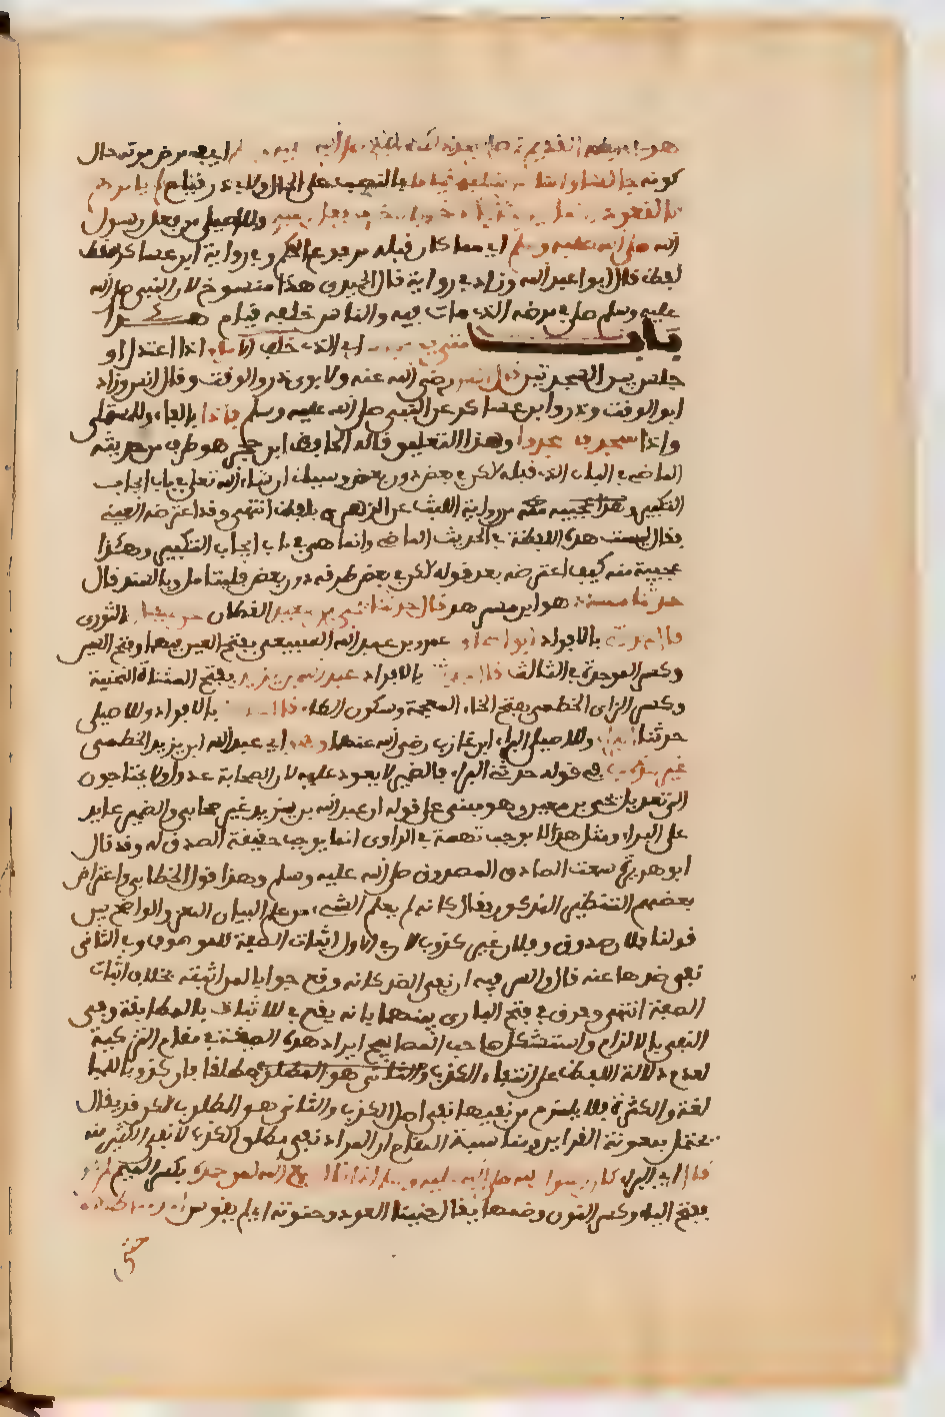 اي في مرض موته حال
كونه جالسا والناس خلفه قياما بالنصب على الحال ولابي ذر قيام لم يامرهم
بالقعود وانما يؤخذ بالاخر فالاخر من فعل النبي وللاصيلي من فعل رسول
الله صلى الله عليه وسلم اي مما كان قبله مرفوع الحكم وفي رواية ابن عساكر سقط
لفظ قال ابو عبد الله وزاد في رواية قال الحميدي هذا منسوخ لان النبي صلى الله
عليه وسلم صلى في مرضه الذي مات فيه والناس خلفه قيام
باب متى يسجد من اي الذي خلف الامام اذا اعتدل او
جلس بين السجدتين قال انس رضي الله عنه ولابوي ذر والوقت وقال انس وزاد
ابو الوقت وذر وابن عساكر عن النبي صلى الله عليه وسلم فاذا بالفاء وللمستملي
واذا سجد فاسجدوا وهذا التعليق قاله الحافظ ابن حجر هو طرف من حديثه
الماضي في الباب الذي قبله لكن في بعض دون بعض وسياتي ان شاء الله تعلى في باب ايجاب
التكبير من رواية الليث عن الزهري بلفظه انتهى وقد اعترضه العيني
فقال ليست هذه اللفظة في الحديث الماضي وانما هي في باب ايجاب التكبير وهذا
عجيب منه كيف اعترضه بعد قوله لكن في بعض طرقه دون بعض فليتامل وبالسند قال
حدثنا مسدد هو ابن مسرهد قال حدثنا يحيى بن سعيد القطان عن سفيان الثوري
قال حدثني بالافراد ابو اسحاق عمرو بن عبد الله السبيعي بفتح العين فيهما وفتح السين
وكسر الموحدة في الثالث قال حدثني بالافراد عبد الله بن يزيد بفتح المثناة التحتية
وكسر الزاي الخطمي بفتح الخاء المعجمة وسكون الطاء قال حدثني بالافراد وللاصيلي
حدثنا البراء وللاصيلي البراء ابن عازب رضي الله عنهما وهو اي عبد الله ابن يزيد الخطمي
غير كذوب في قوله حدثني البراء فالضمير لا يعود عليه لان الصحابة عدول لا يحتاجون
الى تعديل يحيى بن معين وهو مبني على قوله ان عبد الله بن يزيد غير صحابي والضمير عايد
على البراء ومثل هذا لا يوجب تهمة في الراوي انما يوجب حقيقة الصدق له وقد قال
ابو هريرة سمعت الصادق المصدوق صلى الله عليه وسلم وهذا قول الخطابي واعترض
بعضهم التنظير المذكور فقال كانه لم يعلم الشيء من علم البيان للفرق الواضح بين
قولنا فلان صدوق وفلان غير كذوب لان في الاول اثبات الصفة للموصوف وفي الثاني
نفي ضدها عنه قال والسر فيه ان نفي الضد كانه وقع جوابا لمن اثبته بخلاف اثبات
الصفة انتهى وفرق في فتح الباري بينهما بانه يقع في الاثبات بالمطابقة وفي
النفي بالالتزام واستشكل صاحب المصابيح ايراد هذه الصيغة في مقام التزكية
لعدم دلالة اللفظ على انتفاء الكذب والثاني هو المطلوب مطلقا فان كذوبا للمبا
لغة والكثرة فلا يلزم من نفيها نفي اصل الكذب والثاني هو المطلوب لكن قد يقال
يحتمل بمعونة القراين ومناسبة المقام ان المراد نفي مطلق الكذب لا نفي الكثير منه
قال اي البراء كان رسول الله صلى الله عليه وسلم اذا قال سمع الله لمن حمده بكسر الميم لم
بفتح الياء وكسر النون وضمها يقال حنيت العود وحنوته اي لم يقوس احد منا ظهره
حتى